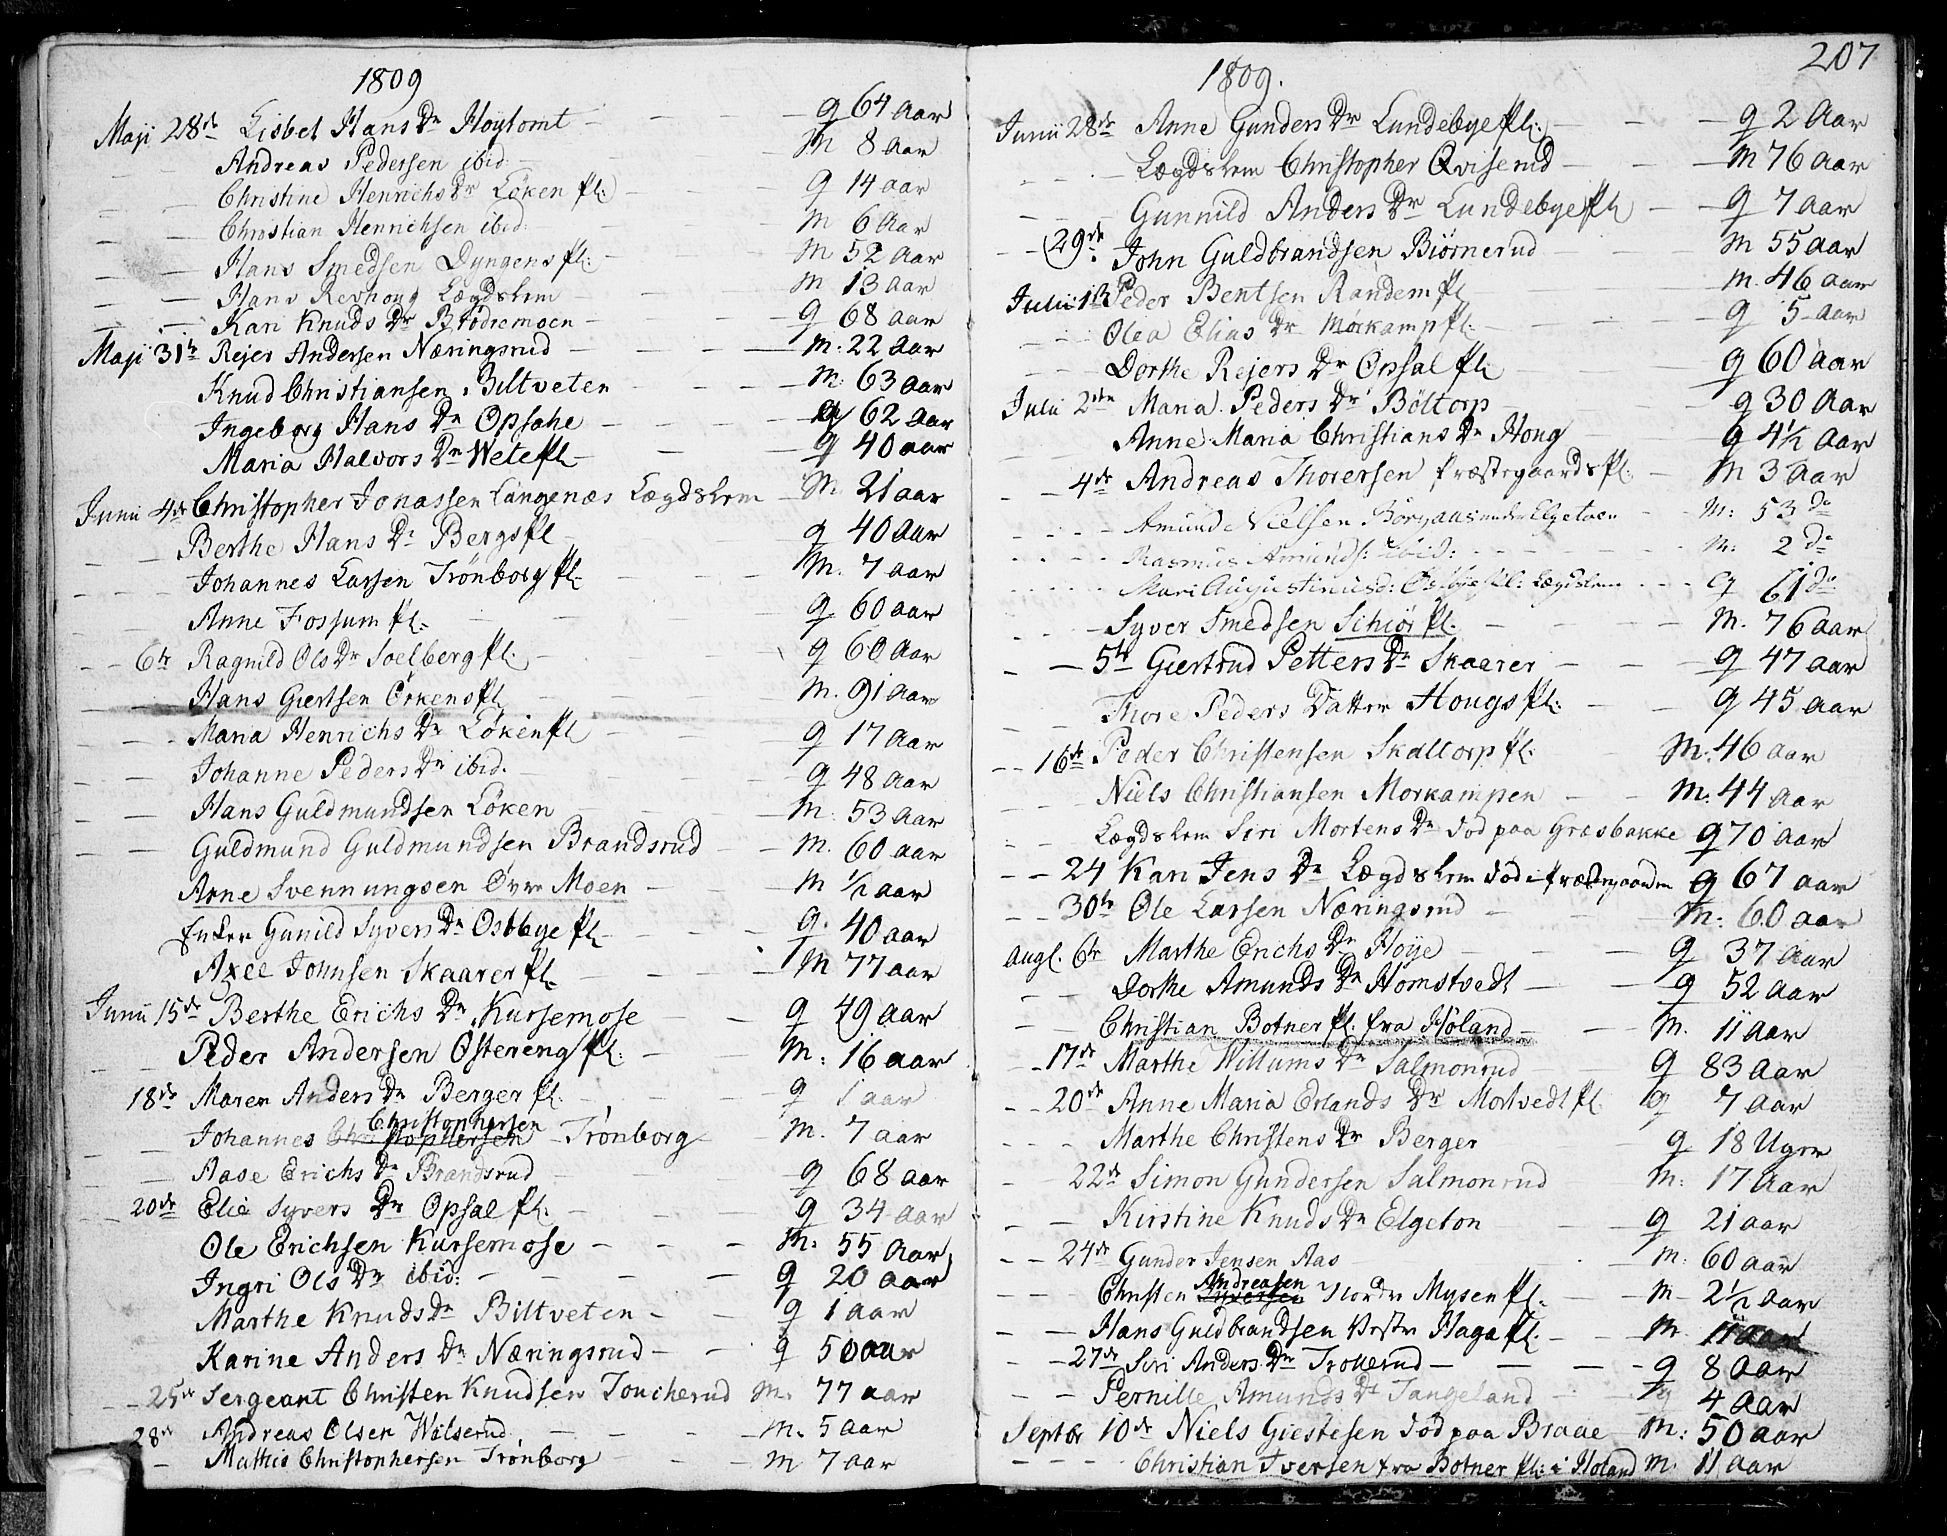 1809
Maji 28de Lisbet Hans Dr Høytomt q 64 aar
Andreas Pedersen ibid. M 8 aar
Christine Henrichs Dr Løken Pl: q 14 aar
Christian Henrichsen ibid. M 6 aar
Hans Smedsen Dyngens Pl: M 52 aar
Hans Revhoug Lægdslem M 13 aar
Kari Knuds Dr Brødremoen q 68 aar
Maji 31te Rejer Andersen Næringsrud M. 22 aar
Knud Christiansen Biltveten M. 63 aar
Ingeborg Hans Dr Opsahe q 62 aar
Maria Halvors Dr Wete Pl q 40 aar
Junii 4de Christopher Jonassen Langenæs Lægdslem M. 21 aar
Berthe Hans Dr Bergs Pl q 40 aar
Johannes Larsen Trönborg Pl. M. 7 aar
Anne Fossum Pl. q 60 aar
6te Ragnild Ols Dr Soelberg Pl. q 60 aar
Hans Giertsen Örkens Pl M. 91 aar
Maria Henrichs Dr Løken Pl q 17 aar
Johanne Peders Dr ibid. q 48 aar
Hans Guldmundsen Löken M. 53 aar
Guldmund Guldmundsen Brandsrud M. 60 aar
Arne Svennungsen Övre Moen M 1/2 aar
Enken Gunild Syvers Dr Ostbye Pl q. 40 aar
Axel Johnsen Skaarer Pl. M 77 aar
Junii 15de Berthe Erichs Dr Kursemose q 49 aar
Peder Andersen Östereng Pl. M. 16 aar
18de Maren Anders Dr Berger Pl. q 1 aar
Christophersen
Johannes Trönborg M. 7 aar
Aase Erichs Dr Brandsrud q 68 aar
20de Elie Syvers Dr Opsal Pl. q 34 aar
Ole Erichsen Kursemose M. 55 aar
Ingri Ols Dr ibid: q 20 aar
Marthe Knuds Dr Biltveten q 1 aar
Karine Anders Dr Næringsrud q 50 aar
25de Sergeant Christen Knudsen Toucherud M. 77 aar
28de Andreas Olsen Wölserud M. 5 aar
Mathis Christophersen Trönborg M 7 aar
207
1809.
Junii 28de Anne Gunders Dr Lundebye Pl: q 2 aar
Lægdslem Christopher Qviserud M 76 aar
Gunnild Anders Dr Lundebye Pl q 7 aar
29de John Guldbrandsen Biörnerud M 55 aar
Julii 1te Peder Bentsen Randem Pl M. 46 aar
Olea Elias Dr Mörkamp Pl. q 5 aar
Dorthe Rejers Dr Opsal Pl q 60 aar
Julii 2den Maria Peders Dr Böltorp q 30 aar
Anne Maria Christians Dr Houg q 4 1/2 aar
4de Andreas Thorersen Præstegaards Pl. M 3 aar
Amund Nielsen under Elgetoen M: 53 do
Rasmus Amunds: ibid: M: 2 do
Mari Augustinusd: Pl: Lægdslem q 61 do
Syver Smedsen Schiöi Pl. M. 76 aar
5te Giertrud Petters Dr Skaarer q 47 aar
Thore Peders Datter Hougs Pl: q 45 aar
16de Peder Christensen Skaltorp Pl. M. 46 aar
Niels Christiansen Morkampen M. 44 aar
Lægdslem Siri Mortens Dr död paa Græsbakke q 70 aar
24 Kari Jens Dr Lægdslem död i Præstegaarden q 67 aar
30te Ole Larsen Næringsrud M. 60 aar
Augl. 6te Marthe Erichs Dr Høje q 37 aar
Dorthe Amunds Dr Homstvedt q 52 aar
Christian Botner Pl. fra Höland M. 11 aar
17de Marthe Willums Dr Salmonrud q 83 aar
20de Anne Maria Erlands Dr Mortvedt Pl. q 7 aar
Marthe Christens Dr Berger q 18 Uger
22de Simon Gundersen Salmonrud M: 17 aar
Kirstine Knuds Dr Elgeton q 21 aar
24de Gunder Jensen Aas M: 60 aar
Andreasen
Christen Nordre Mysen Pl. M 2 1/2 aar
Hans Guldbrandsen Vestre Haga Pl. M. 11 aar
27de Siri Anders Dr Trollerud q 8 aar
Pernille Amunds Dr Tangeland q 4 aar
Septbr 10de Niels Giestesen död paa Braae M: 50 aar
Christian Iversen fra Botner Pl: i Höland M. 11 aar